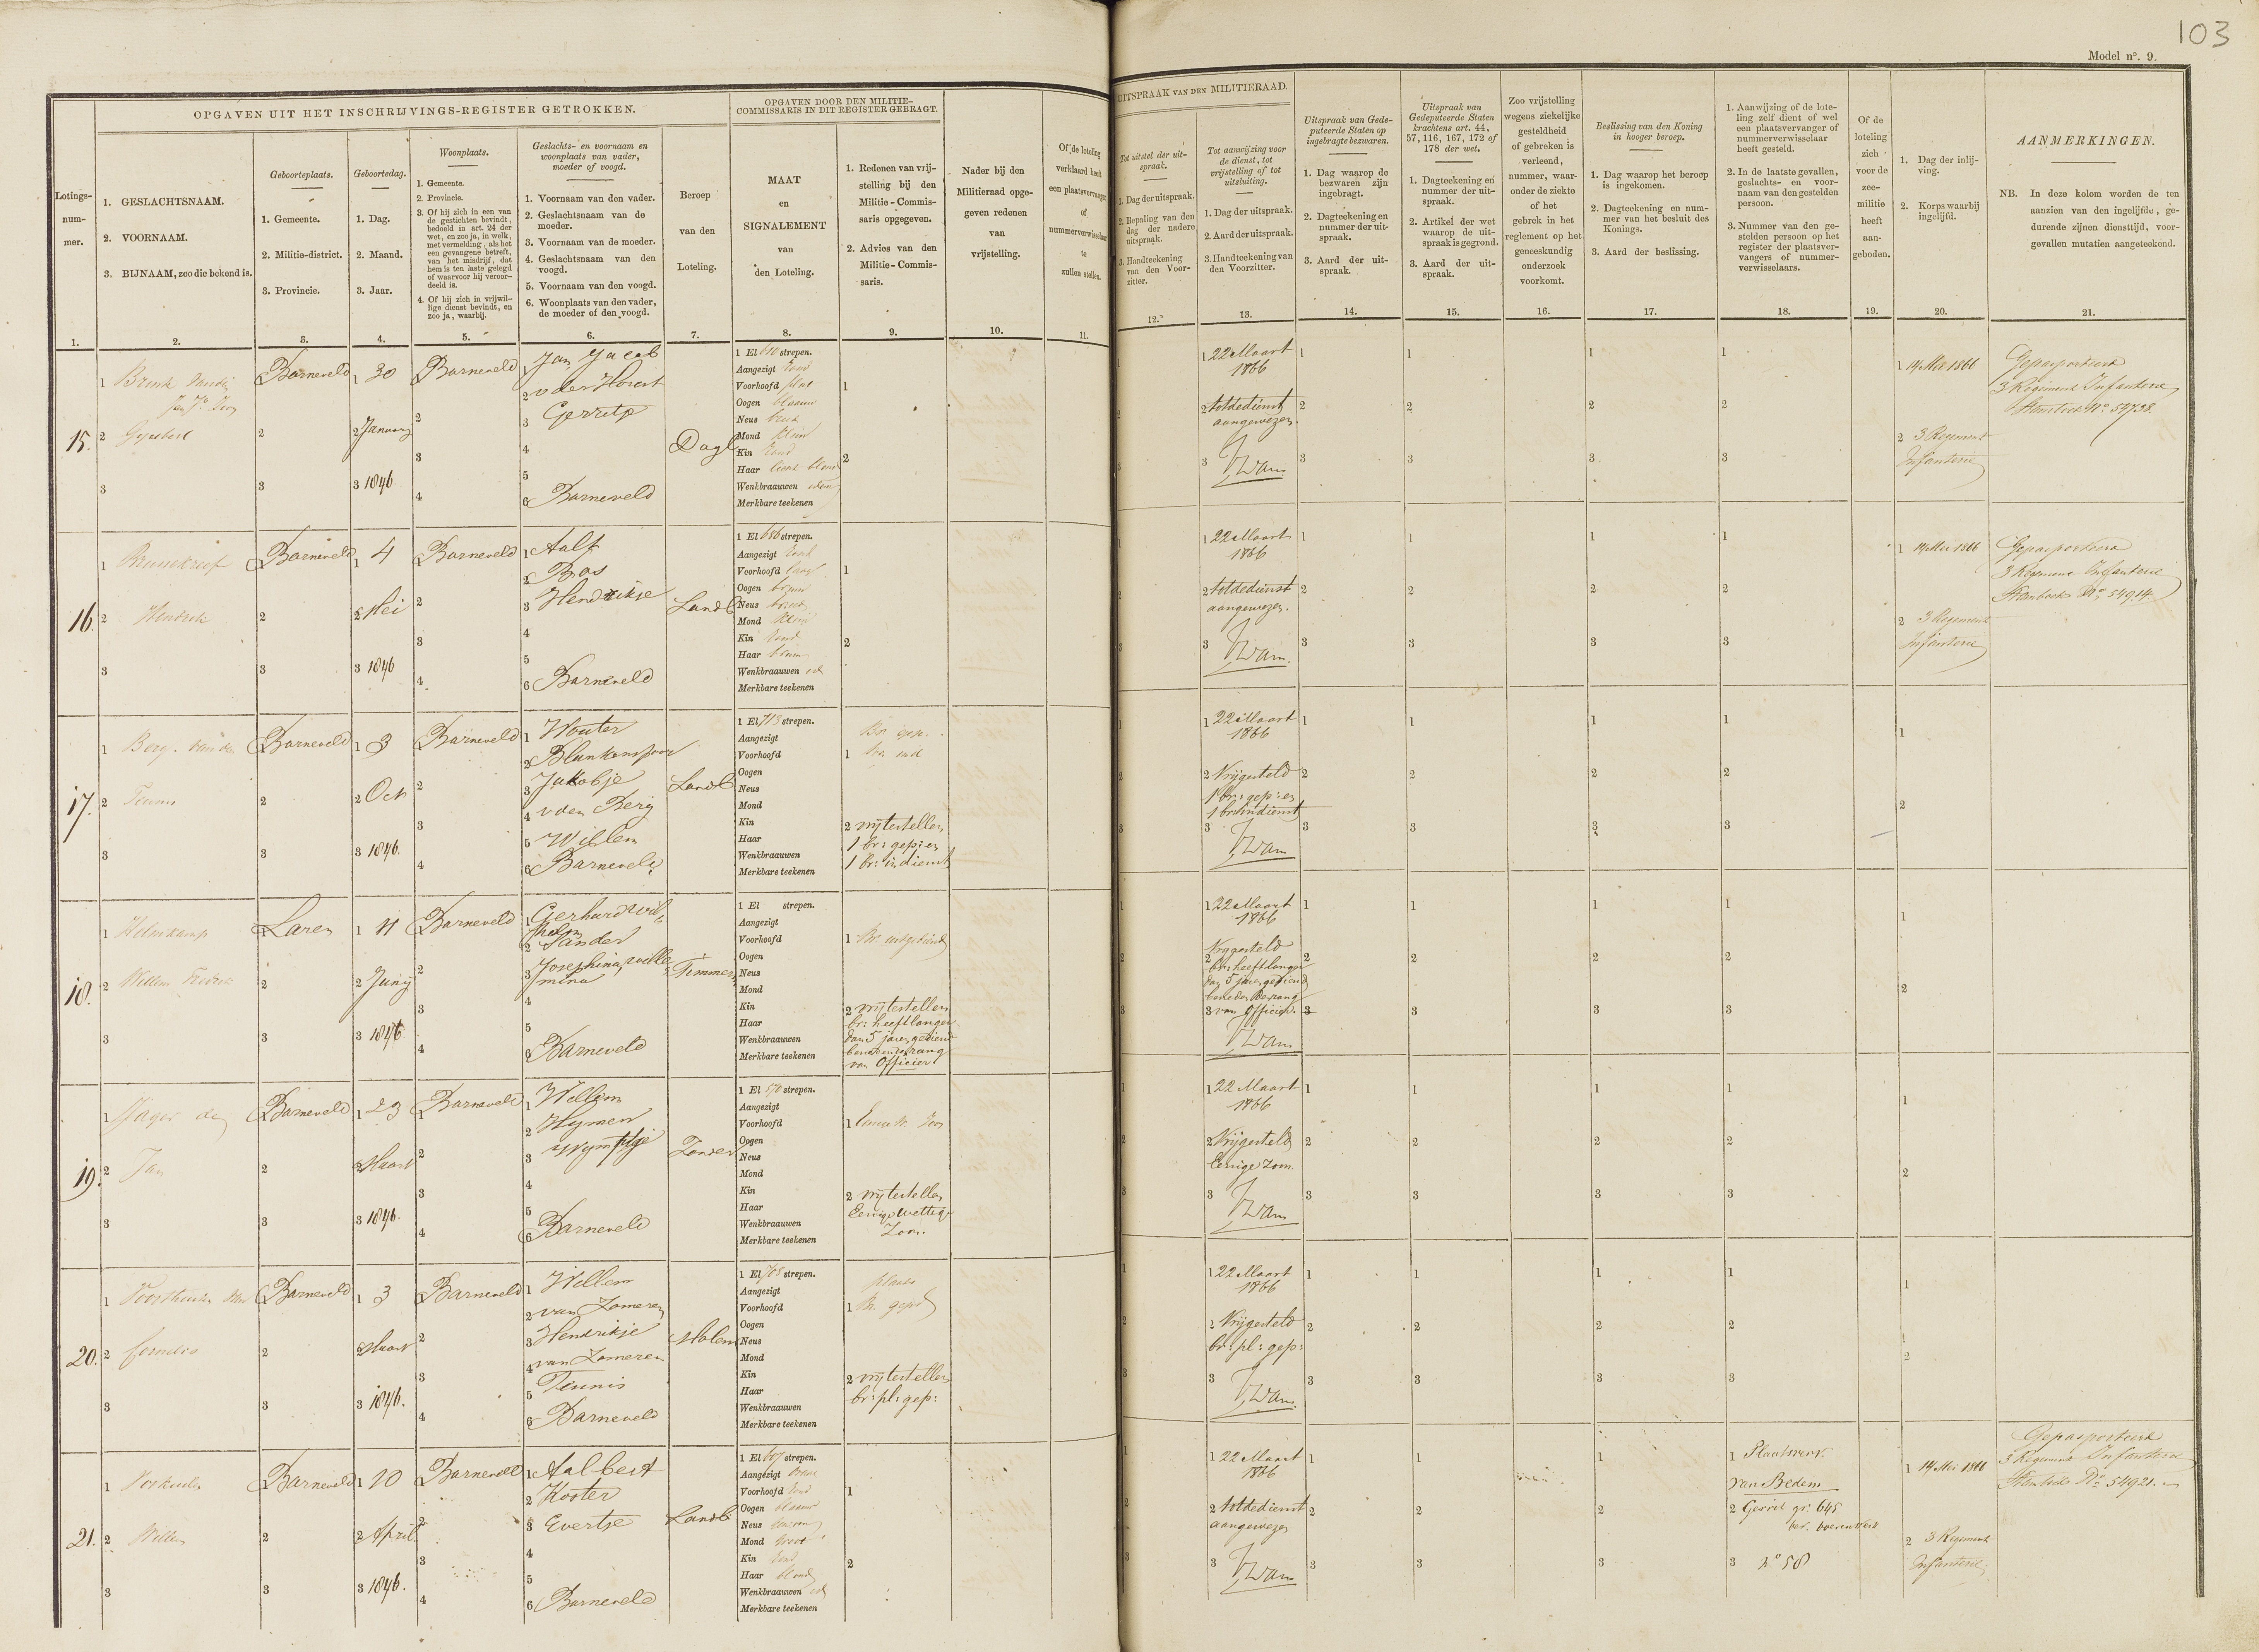 103
Model nº. 9.
OPGAVEN UIT HET INSCHRIJVINGS-REGISTER GETROKKEN.
OPGAVEN DOOR DEN MILITIE-
COMMISSARIS IN DIT REGISTER GEBRAGT.
UITSPRAAK VAN DEN MILITIERAAD.
Lotings-
num-
mer.
1.
1. GESLACHTSNAAM.
2. VOORNAAM.
3. BIJNAAM, zoo die bekend is.
2.
Geboorteplaats.
1. Gemeente.
2. Militie-district.
3. Provincie.
3.
Geboortedag.
1. Dag.
2. Maand.
3. Jaar.
4.
Woonplaats.
1. Gemeente.
2. Provincie.
3. Of hij zich in een van
de gestichten bevindt,
bedoeld in art. 24 der
wet, en zoo ja, in welk,
met vermelding, als het
een gevangene betreft,
van het misdrijf, dat
hem is ten laste gelegd
of waarvoor hij veroor-
deeld is.
4. Of hij zich in vrijwil-
lige dienst bevindt, en
zoo ja, waarbij.
5.
Geslachts- en voornaam en
woonplaats van vader,
moeder of voogd.
1. Voornaam van den vader.
2. Geslachtsnaam van de
moeder.
3. Voornaam van de moeder.
4. Geslachtsnaam van den
voogd.
5. Voornaam van den voogd.
6. Woonplaats van den vader,
de moeder of den voogd.
6.
Beroep
van den
Loteling.
7.
MAAT
en
SIGNALEMENT
van
den Loteling.
8.
1. Redenen van vrij-
stelling bij den
Militie-Commis-
saris opgegeven.
2. Advies van den
Militie-Commis-
saris.
9.
Nader bij den
Militieraad opge-
geven redenen
van
vrijstelling.
10.
Of de loteling
verklaard heeft
een plaatsvervanger
of
nummerverwisselaar
te
zullen stellen.
11.
Tot uitstel der uit-
spraak.
1. Dag der uitspraak.
2. Bepaling van den
dag der nadere
uitspraak.
3. Handteekening
van den Voor-
zitter.
12.
Tot aanwijzing voor
de dienst, tot
vrijstelling of tot
uitsluiting.
1. Dag der uitspraak.
2. Aard der uitspraak.
3. Handteekening van
den Voorzitter.
13.
Uitspraak van Gede-
puteerde Staten op
ingebragte bezwaren.
1. Dag waarop de
bezwaren zijn
ingebragt.
2. Dagteekening en
nummer der uit-
spraak.
3. Aard der uit-
spraak.
14.
Uitspraak van
Gedeputeerde Staten
krachtens art. 44,
57, 116, 167, 172 of
178 der wet.
1. Dagteekening en
nummer der uit-
spraak.
2. Artikel der wet
waarop de uit-
spraak is gegrond.
3. Aard der uit-
spraak.
15.
Zoo vrijstelling
wegens ziekelijke
gesteldheid
of gebreken is
verleend,
nummer, waar-
onder de ziekte
of het
gebrek in het
reglement op het
geneeskundig
onderzoek
voorkomt.
16.
Beslissing van den Koning
in hooger beroep.
1. Dag waarop het beroep
is ingekomen.
2. Dagteekening en num-
mer van het besluit des
Konings.
3. Aard der beslissing.
17.
1. Aanwijzing of de lote-
ling zelf dient of wel
een plaatsvervanger of
nummerverwisselaar
heeft gesteld.
2. In de laatste gevallen,
geslachts- en voor-
naam van den gestelden
persoon.
3. Nummer van den ge-
stelden persoon op het
register der plaatsver-
vangers of nummer-
verwisselaars.
18.
Of de
loteling
zich
voor de
zee-
militie
heeft
aan-
geboden.
19.
1. Dag der inlij-
ving.
2. Korps waarbij
ingelijfd.
20.
AANMERKINGEN.
NB. In deze kolom worden de ten
aanzien van den ingelijfde, ge-
durende zijnen diensttijd, voor-
gevallen mutatien aangeteekend.
21.
15.
1 Brink
2 Gijsbert
3
Barneveld
1 30
2 January
3 1846
Barneveld
1 Jan Jacob
2 v der Horst
3 Gerritje
4
5
6 Barneveld
Dagl
1 El 610 strepen.
Aangezigt rond
Voorhoofd plat
Oogen blaauw
Neus breed
Mond klein
Kin rond
Haar blond
Wenkbraauwen
Merkbare teekenen
1 22 Maart
1866
2 tot de dienst
aangewezen.
1 14 Mei 1866
2 3 Regement
Infanterie
Gepasporteerd
3 Regiment Infanterie
Stamboek Nº. 54738.
16.
2 Hendrik
Barneveld
1 4
2 Mei
3 1846
Barneveld
1 Aalt
2 Bos
3 Hendrikje
4
5
6 Barneveld
Landb
1 El 686 strepen.
Aangezigt rond
Voorhoofd laag
Oogen bruin
Neus breed
Mond klein
Kin rond
Haar bruin
Wenkbraauwen id
Merkbare teekenen
1 22 Maart
1866
2 tot de dienst
aangewezen.
1 14 Mei 1866
2 3 Regement
Infanterie
Gepasporteerd
3 Regiment Infanterie
Stamboek Nº. 54914.
17.
1 Berg. van den
2 Teunis
Barneveld
1 3
2 Oct
3 1846.
Barneveld
1 Wouter
2 Blankenspoor
3 Jakobje
4 v den Berg
5 Willem
6 Barneveld
Landb
1 El 713 strepen.
Aangezigt
Voorhoofd
Oogen
Neus
Mond
Kin
Haar
Wenkbraauwen
Merkbare teekenen
2 vrij te stellen
1 br: gep: en
1 br: in dienst
1 22 Maart
1866
2 Vrijgesteld
1 br: gep: en
1 br: in dienst
18.
2 Willem Fredrik
Laren
1 11
2 Junij
3 1846
Barneveld
1 Gerhard Wil
helm
2 Sander
3 Josephina Wille
mina
4
5
6 Barneveld
Timmer
1 El strepen.
Aangezigt
Voorhoofd
Oogen
Neus
Mond
Kin
Haar
Wenkbraauwen
Merkbare teekenen
1 Br. uitgediend
2 vrij te stellen
br: heeft langer
dan 5 jaren gediend
beneden den rang
van Officier
1 22 Maart
1866
Vrijgesteld
2 br: heeft langer
dan 5 jaren gediend
beneden de rang
3 van Officier.
19.
1 Jager de
2 Jan
Barneveld
1 23
2 Maart
3 1846.
Barneveld
1 Willem
2 Hymen
3 Wijmtje
4
5
6 Barneveld
1 El 570 strepen.
Aangezigt
Voorhoofd
Oogen
Neus
Mond
Kin
Haar
Wenkbraauwen
Merkbare teekenen
2 vrij te stellen
Eenige wettige
Zoon.
1 22 Maart
1866
2 Vrijgesteld
Eenige zoon.
20.
1 Voorthuizen van
2 Cornelis
Barneveld
1 3
2 Maart
3 1846.
Barneveld
1 Willem
2 van Zomeren
3 Hendrikje
4 van Zomeren
5 Teunis
6 Barneveld
Molen
1 El 708 strepen.
Aangezigt
Voorhoofd
Oogen
Neus
Mond
Kin
Haar
Wenkbraauwen
Merkbare teekenen
2 vrij te stellen
br: pl: gep:
1 22 Maart
1866
2 Vrijgesteld
br: pl: gep:
21.
2 Willem
Barneveld
1 10
2 April
3 1846.
Barneveld
1 Aalbert
2 Koster
3 Evertje
4
5
6 Barneveld
Landb
1 El 607 strepen.
Aangezigt
Voorhoofd rond
Oogen blaauw
Neus
Mond groot
Kin rond
Haar blond
Wenkbraauwen id
Merkbare teekenen
1 22 Maart
1866
2 tot de dienst
aangewezen
1 Plaatsverv.
van Bedem
2 Gerrit gr: 645
3 nº 58
1 14 Mei 1866
2 3 Regement
Infanterie
Gepasporteerd
3 Regiment Infanterie
Stamboek Nº. 54921.